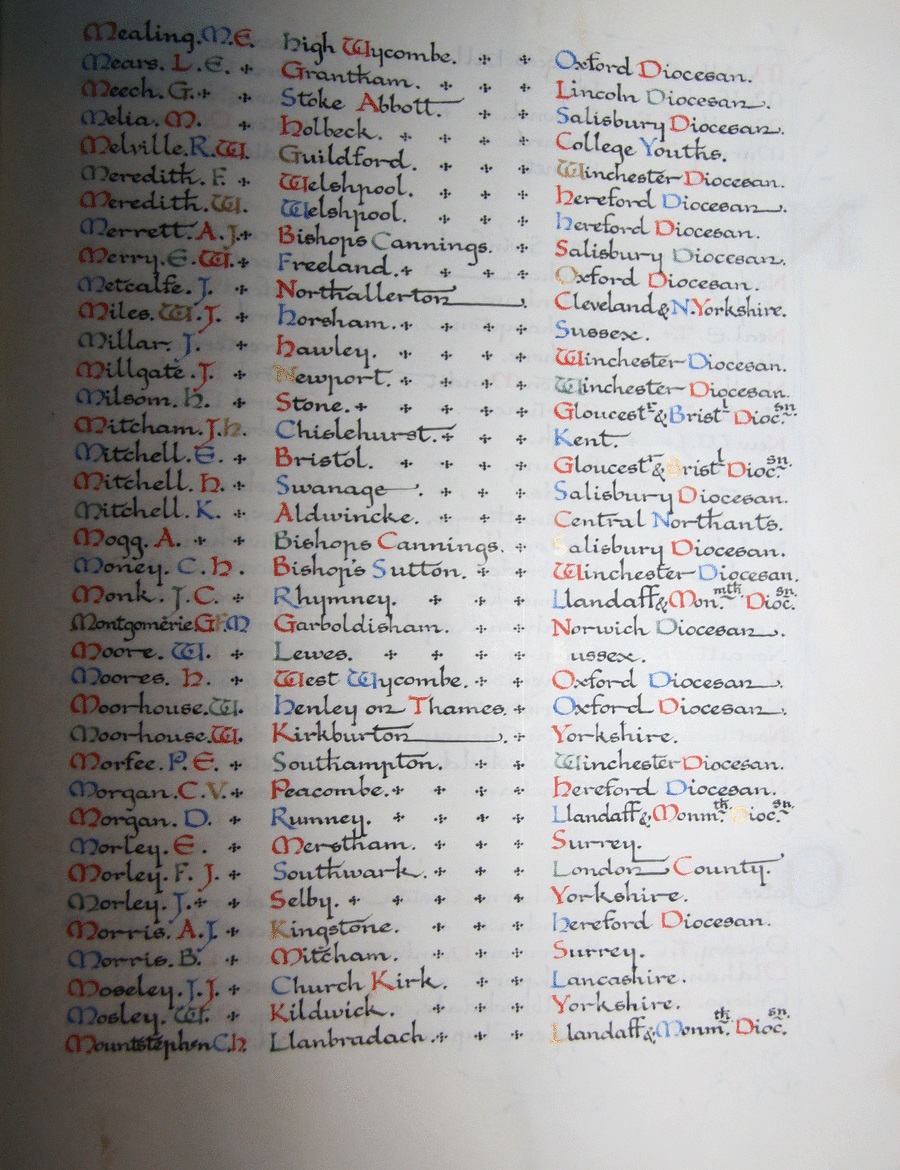 Mealing. M.E. High Wycombe. Oxford Diocesan.
Mears. L.E. Grantham. Lincoln Diocesan.
Meech. G. Stoke Abbott. Salisbury Diocesan.
Melia. M. Holbeck. College Youths.
Melville. R.W. Guildford. Winchester Diocesan.
Meredith. F. Welshpool. Hereford Diocesan.
Meredith. W. Welshpool. Hereford Diocesan.
Merrett. A.J. Bishops Cannings. Salisbury Diocesan.
Merry. E.W. Freeland. Oxford Diocesan.
Metcalfe. J. Northallerton. Cleveland & N. Yorkshire.
Miles. W.J. Horsham. Sussex.
Millar. J. Hawley. Winchester Diocesan.
Millgate. J. Newport. Winchester Diocesan.
Milsom. H. Stone. Gloucestr & Bristl Diocsn.
Mitcham. J.H. Chislehurst. Kent.
Mitchell. E. Bristol. Gloucestr & Bristl Diocsn.
Mitchell. H. Swanage. Salisbury Diocesan.
Mitchell. K. Aldwincke. Central Northants.
Mogg. A. Bishops Cannings. Salisbury Diocesan.
Money. C.H. Bishop's Sutton. Winchester Diocesan.
Monk. J.C. Rhymney. Llandaff & Mon.mth Diocsn.
Montgomerie G.F.M Garboldisham. Norwich Diocesan.
Moore. W. Lewes. Sussex.
Moores. H. West Wycombe. Oxford Diocesan.
Moorhouse. W. Henley on Thames. Oxford Diocesan.
Moorhouse. W. Kirkburton. Yorkshire.
Morfee. P.E. Southampton. Winchester Diocesan.
Morgan. C.V. Peacombe. Hereford Diocesan.
Morgan. D. Rumney. Llandaff & Monmth Diocsn.
Morley. E. Merstham. Surrey.
Morley. F.J. Southwark. London County.
Morley. J. Selby. Yorkshire.
Morris. A.J. Kingstone. Hereford Diocesan.
Morris. B. Mitcham. Surrey.
Moseley. J.J. Church Kirk. Lancashire.
Mosley. W. Kildwick. Yorkshire.
Mountstephen C.H Llanbradach. Llandaff & Monmth Diocsn.